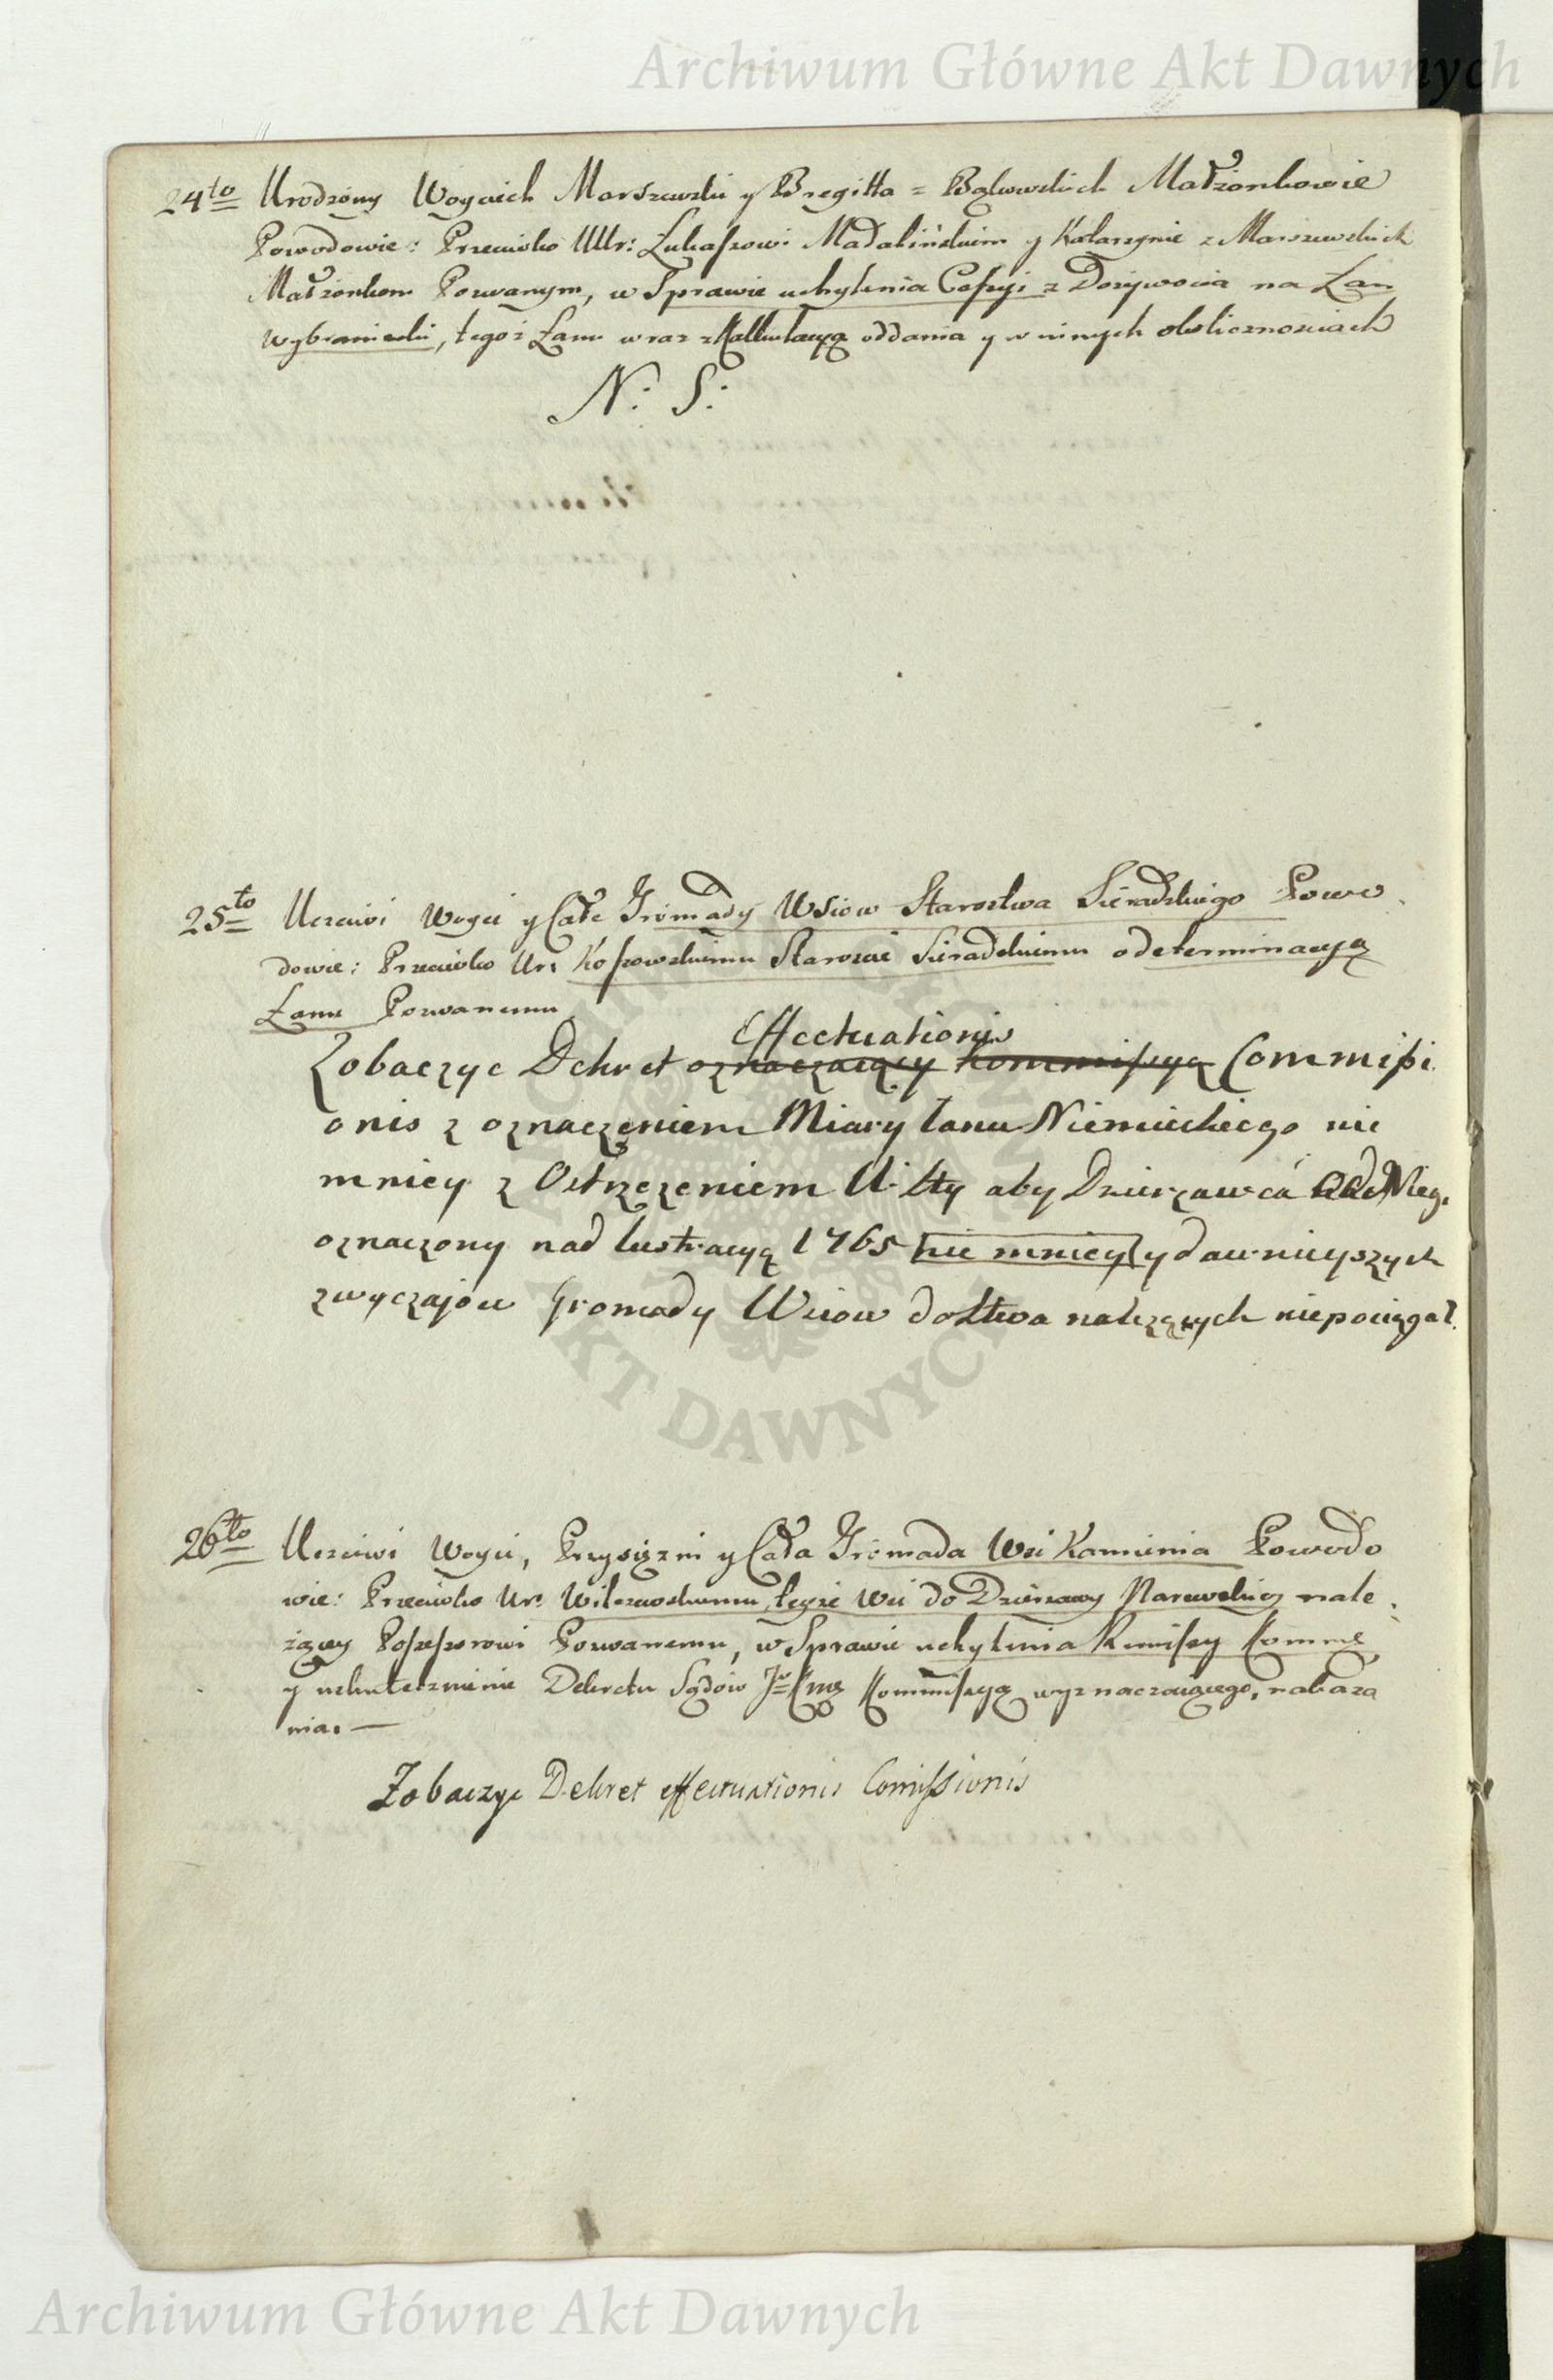 Archiwum Główne Akt Dawnych
24to Urodzony Woyciech Marszewski y Bregitta z Bąkowskich Małżonkowie
Powodowie: Przeciwko UUr: Łukaszowi Madalińskim y Katarzynie z Marszewskich
Małżonkom Pozwanym, w Sprawie uchylenia Cessyi z Dożywocia na Łan
wybraniecki, tegoż Łanu wraz z Kalkulacyą oddania y w innych okolicznosciach
N: S:
25to Uczciwi Woyci y Całe Gromady Wsiow Starostwa Sieradzkiego Powo
dowie: Przeciwko Ur: Kossowskiemu Staroscie Sieradzkiemu o determinacyą
Łanu Pozwanemu
Effectuationis
Zobaczyc Dekret oznaczaiący Kommissyą Commissi
onis z oznaczeniem Miary łanu Niemieckiego nie
mniey z Ostrzezeniem aby Dzierzawca
oznaczony nad lustracyą 1765 nie mniey y dawnieyszych
zwyczajow Gromady Wsiow do Stwa nalezących niepociągał.
26to Uczciwi Woyci, Przysiężni y Cała Gromada Wsi Kamienia Powodo
wie: Przeciwko Ur: Wilczewskiemu teyże Wsi do Dzierżawy Narewskiey nale
żącey Possessorowi Pozwanemu, w Sprawie uchylenia Remissy Komme
y uskutecznienie Dekretu Sądow JKMci Kommissyą wyznaczaiącego, nakaza
nia. —
Zobaczyc Dekret effectuationis Comissionis
AKT DAWNYCH
Archiwum Główne Akt Dawnych